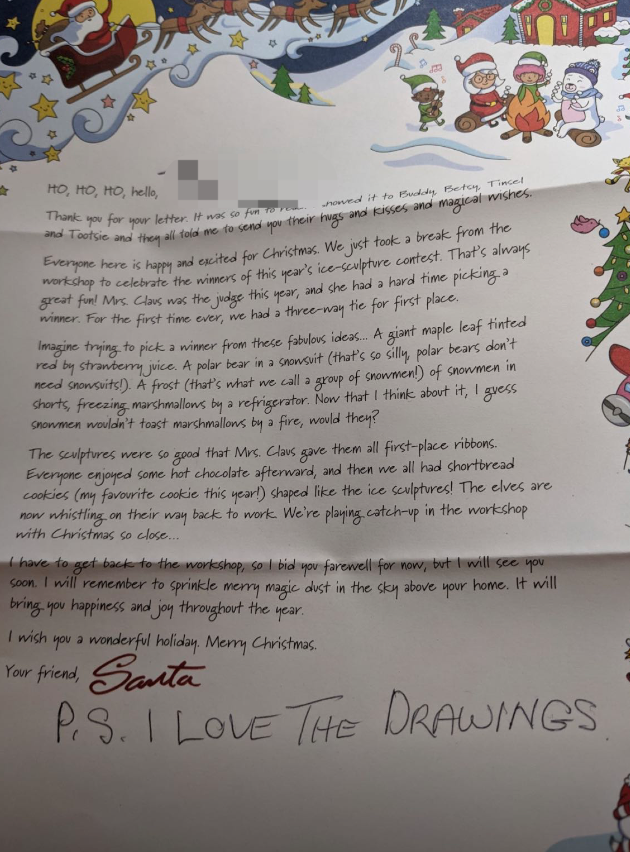 HO, HO, HO, hello,
Thank you for your letter. It was so fun to howed it to Buddy, Betsy, Tinsel
and Tootsie and they all told me to send you their hugs and kisses and magical wishes.
Everyone here is happy and excited for Christmas. We just took a break from the
workshop to celebrate the winners of this year's ice-sculpture contest. That's always
great fun! Mrs. Claus was the judge this year, and she had a hard time picking a
winner. For the first time ever, we had a three-way tie for first place.
Imagine trying to pick a winner from these fabulous ideas... A giant maple leaf tinted
red by strawberry juice. A polar bear in a snowsuit (that's so silly, polar bears don't
need snowsuits!). A frost (that's what we call a group of snowmen!) of snowmen in
shorts, freezing marshmallows by a refrigerator. Now that I think about it, I guess
snowmen wouldn't toast marshmallows by a fire, would they?
The sculptures were so good that Mrs. Claus gave them all first-place ribbons.
Everyone enjoyed some hot chocolate afterward, and then we all had shortbread
cookies (my favourite cookie this year!) shaped like the ice sculptures! The elves are
now whistling on their way back to work. We're playing catch-up in the workshop
with Christmas so close...
I have to get back to the workshop, so I bid you farewell for now, but I will see you
soon. I will remember to sprinkle merry magic dust in the sky above your home. It will
bring you happiness and joy throughout the year.
I wish you a wonderful holiday. Merry Christmas.
Your friend, Santa
P.S. I LOVE THE DRAWINGS.